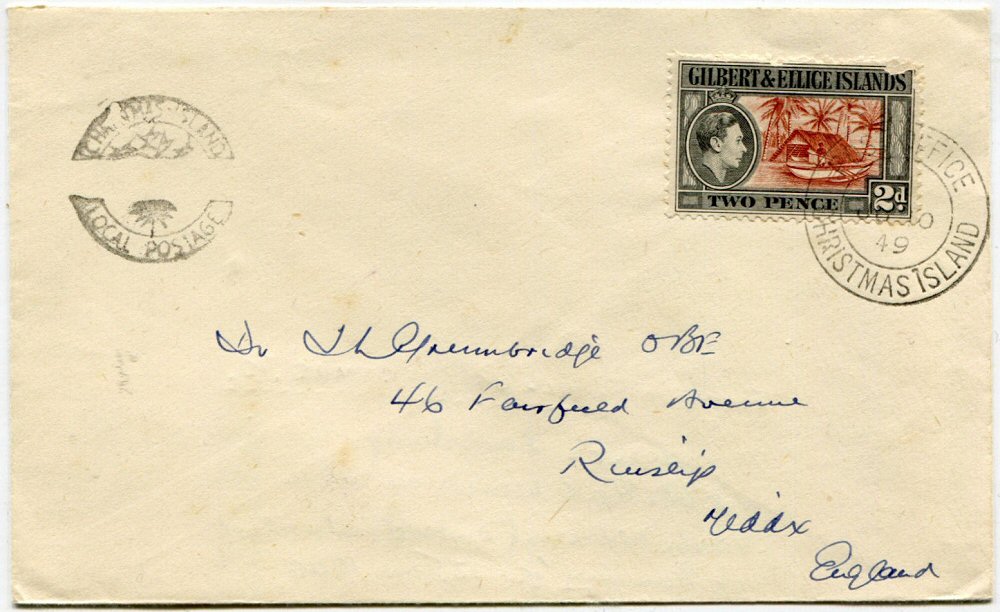 CHRISTMAS ISLAND
LOCAL POSTAGE
GILBERT & ELLICE ISLANDS
TWO PENCE
2d.
OFFICE
49
CHRISTMAS ISLAND
Dr Greenbridge OBE
46 Fairfield Avenue
Ruislip
Middx
England